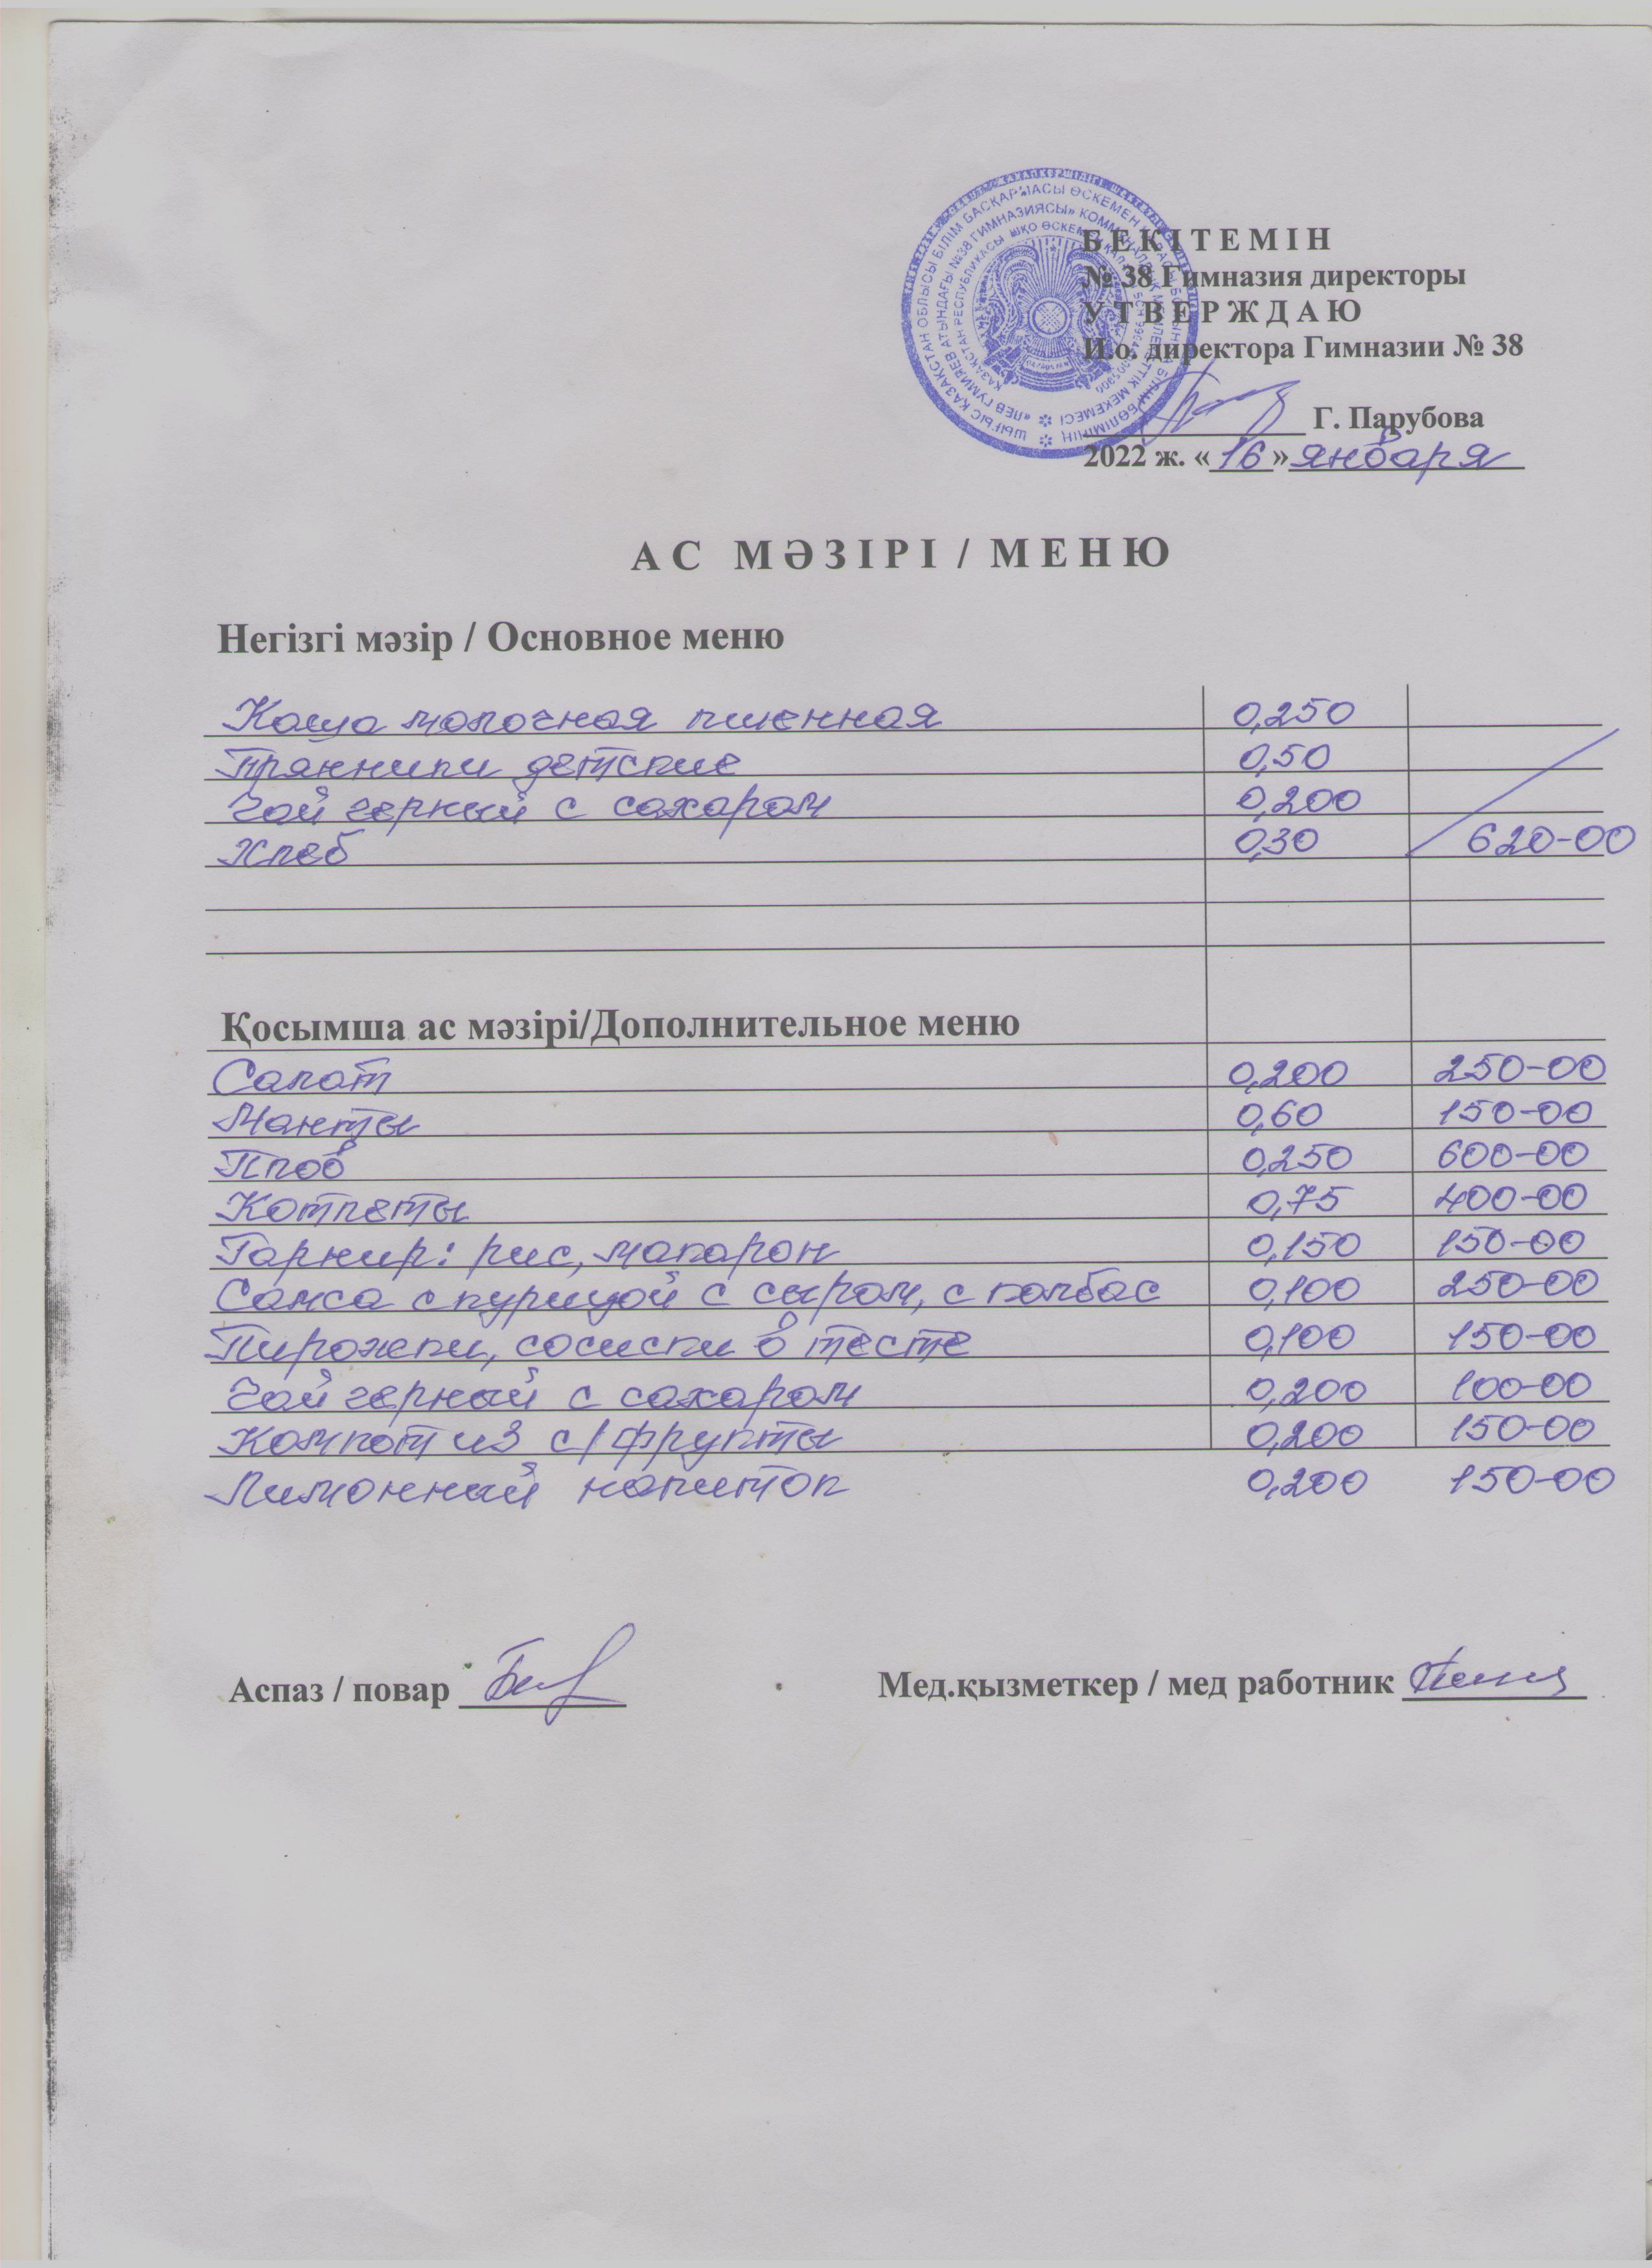 БЕКІТЕМІН
№ 38 Гимназия директоры
УТВЕРЖДАЮ
И.о. директора Гимназии № 38
Г. Парубова
2022 ж. «16» января
АС МӘЗІРІ / МЕНЮ
Негізгі мәзір / Основное меню
Каша молочная пшенная 0,250
Пряники детские 0,50
Чай черный с сахаром 0,200
Хлеб 0,30 620-00
Қосымша ас мәзірі/Дополнительное меню
Салат 0,200 250-00
Манты 0,60 150-00
Плов 0,250 600-00
Котлеты 0,75 400-00
Гарнир: рис, макарон 0,150 150-00
Самса с курицой с сыром, с колбас 0,100 250-00
Пирожки, сосиски в тесте 0,100 150-00
Чай черный с сахаром 0,200 100-00
Компот из с/фрукты 0,200 150-00
Лимонный напиток 0,200 150-00
Аспаз / повар Мед.қызметкер / мед работник